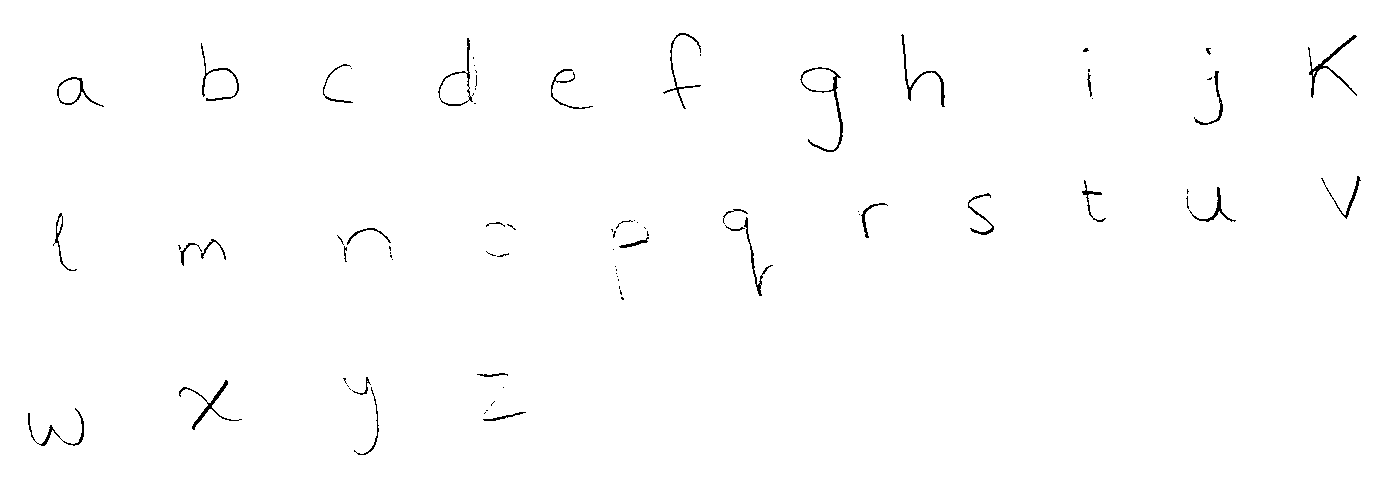 a b c d e f g h i j K
l m n o p q r s t u v
w x y z